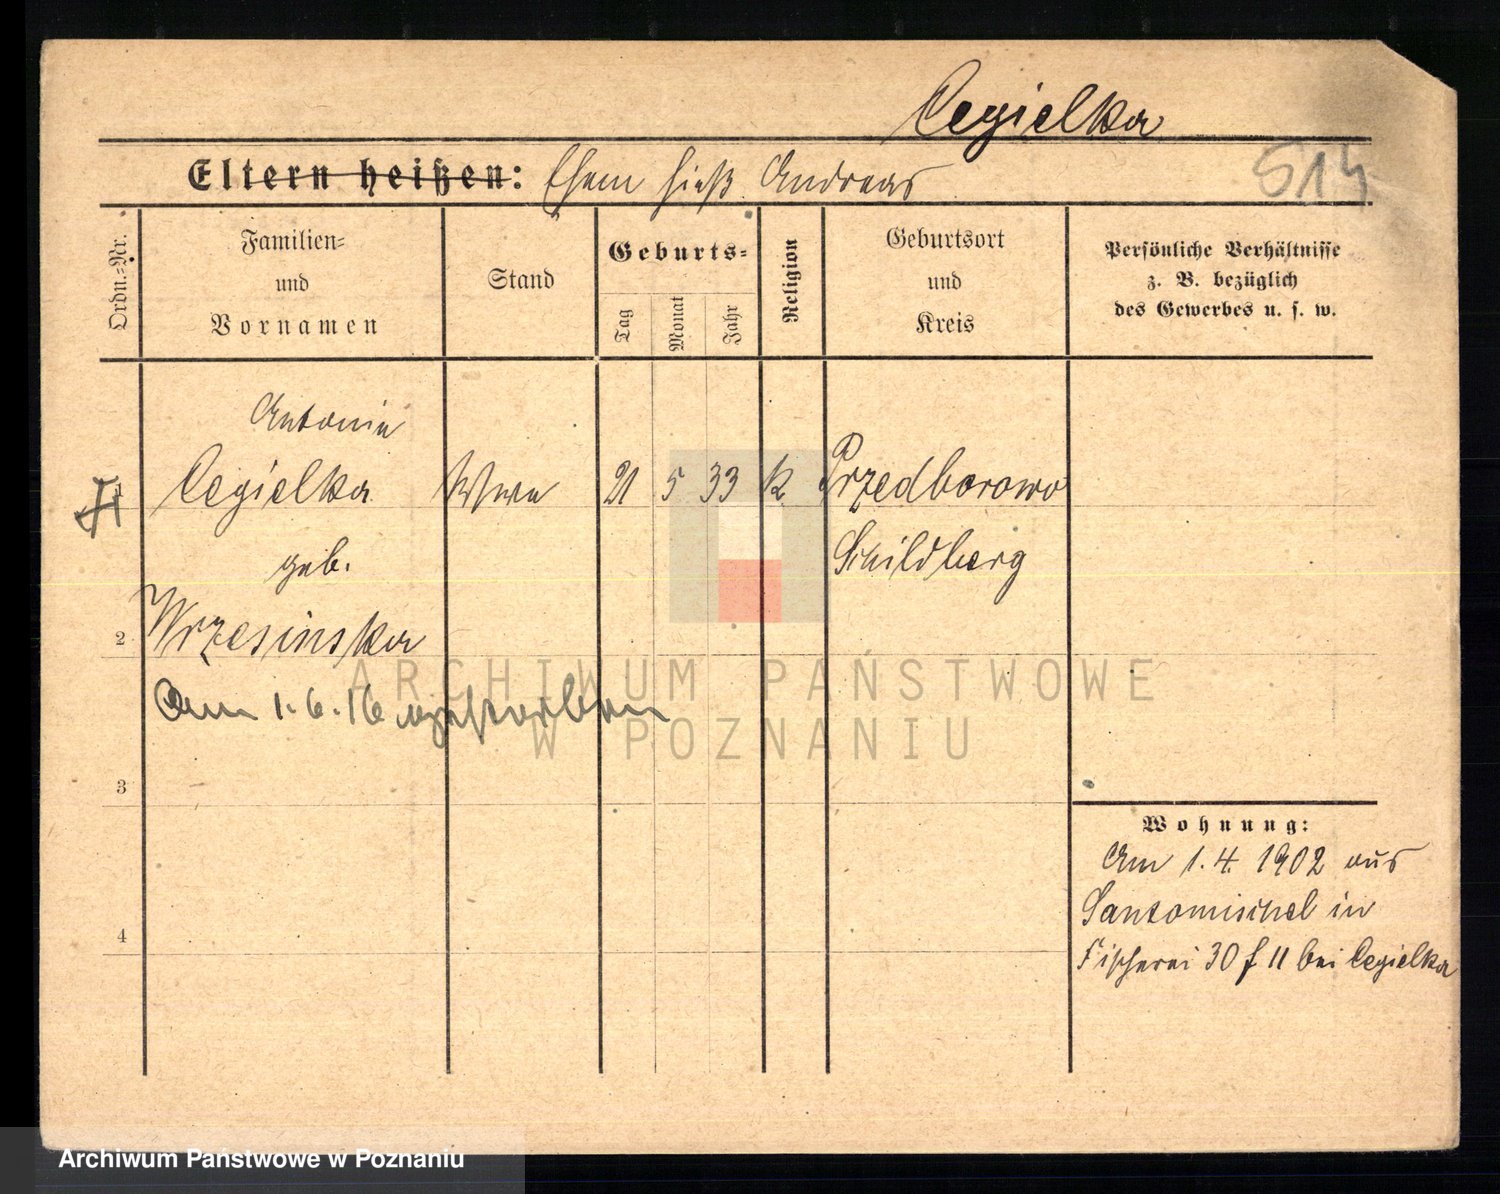 Cegielka
Eltern heißen: Ehem hieß Andreas
Ordn.-Nr.
Familien-
und
Vornamen
Stand
Geburts-
Tag
Monat
Jahr
Religion
Geburtsort
und
Kreis
Persönliche Verhältnisse
z. B. bezüglich
des Gewerbes u. s. w.
Antonie
1 Cegielka Wwe 21 5 33 k Przedborowo
geb. Schildberg
2 Wrzesinska
Am 1.6.16 verstorben
3
4
Wohnung:
Am 1.4.1902 aus
Santomischel in
Fischerei 30 f II bei Cegielka
ARCHIWUM PAŃSTWOWE
W POZNANIU
Archiwum Państwowe w Poznaniu